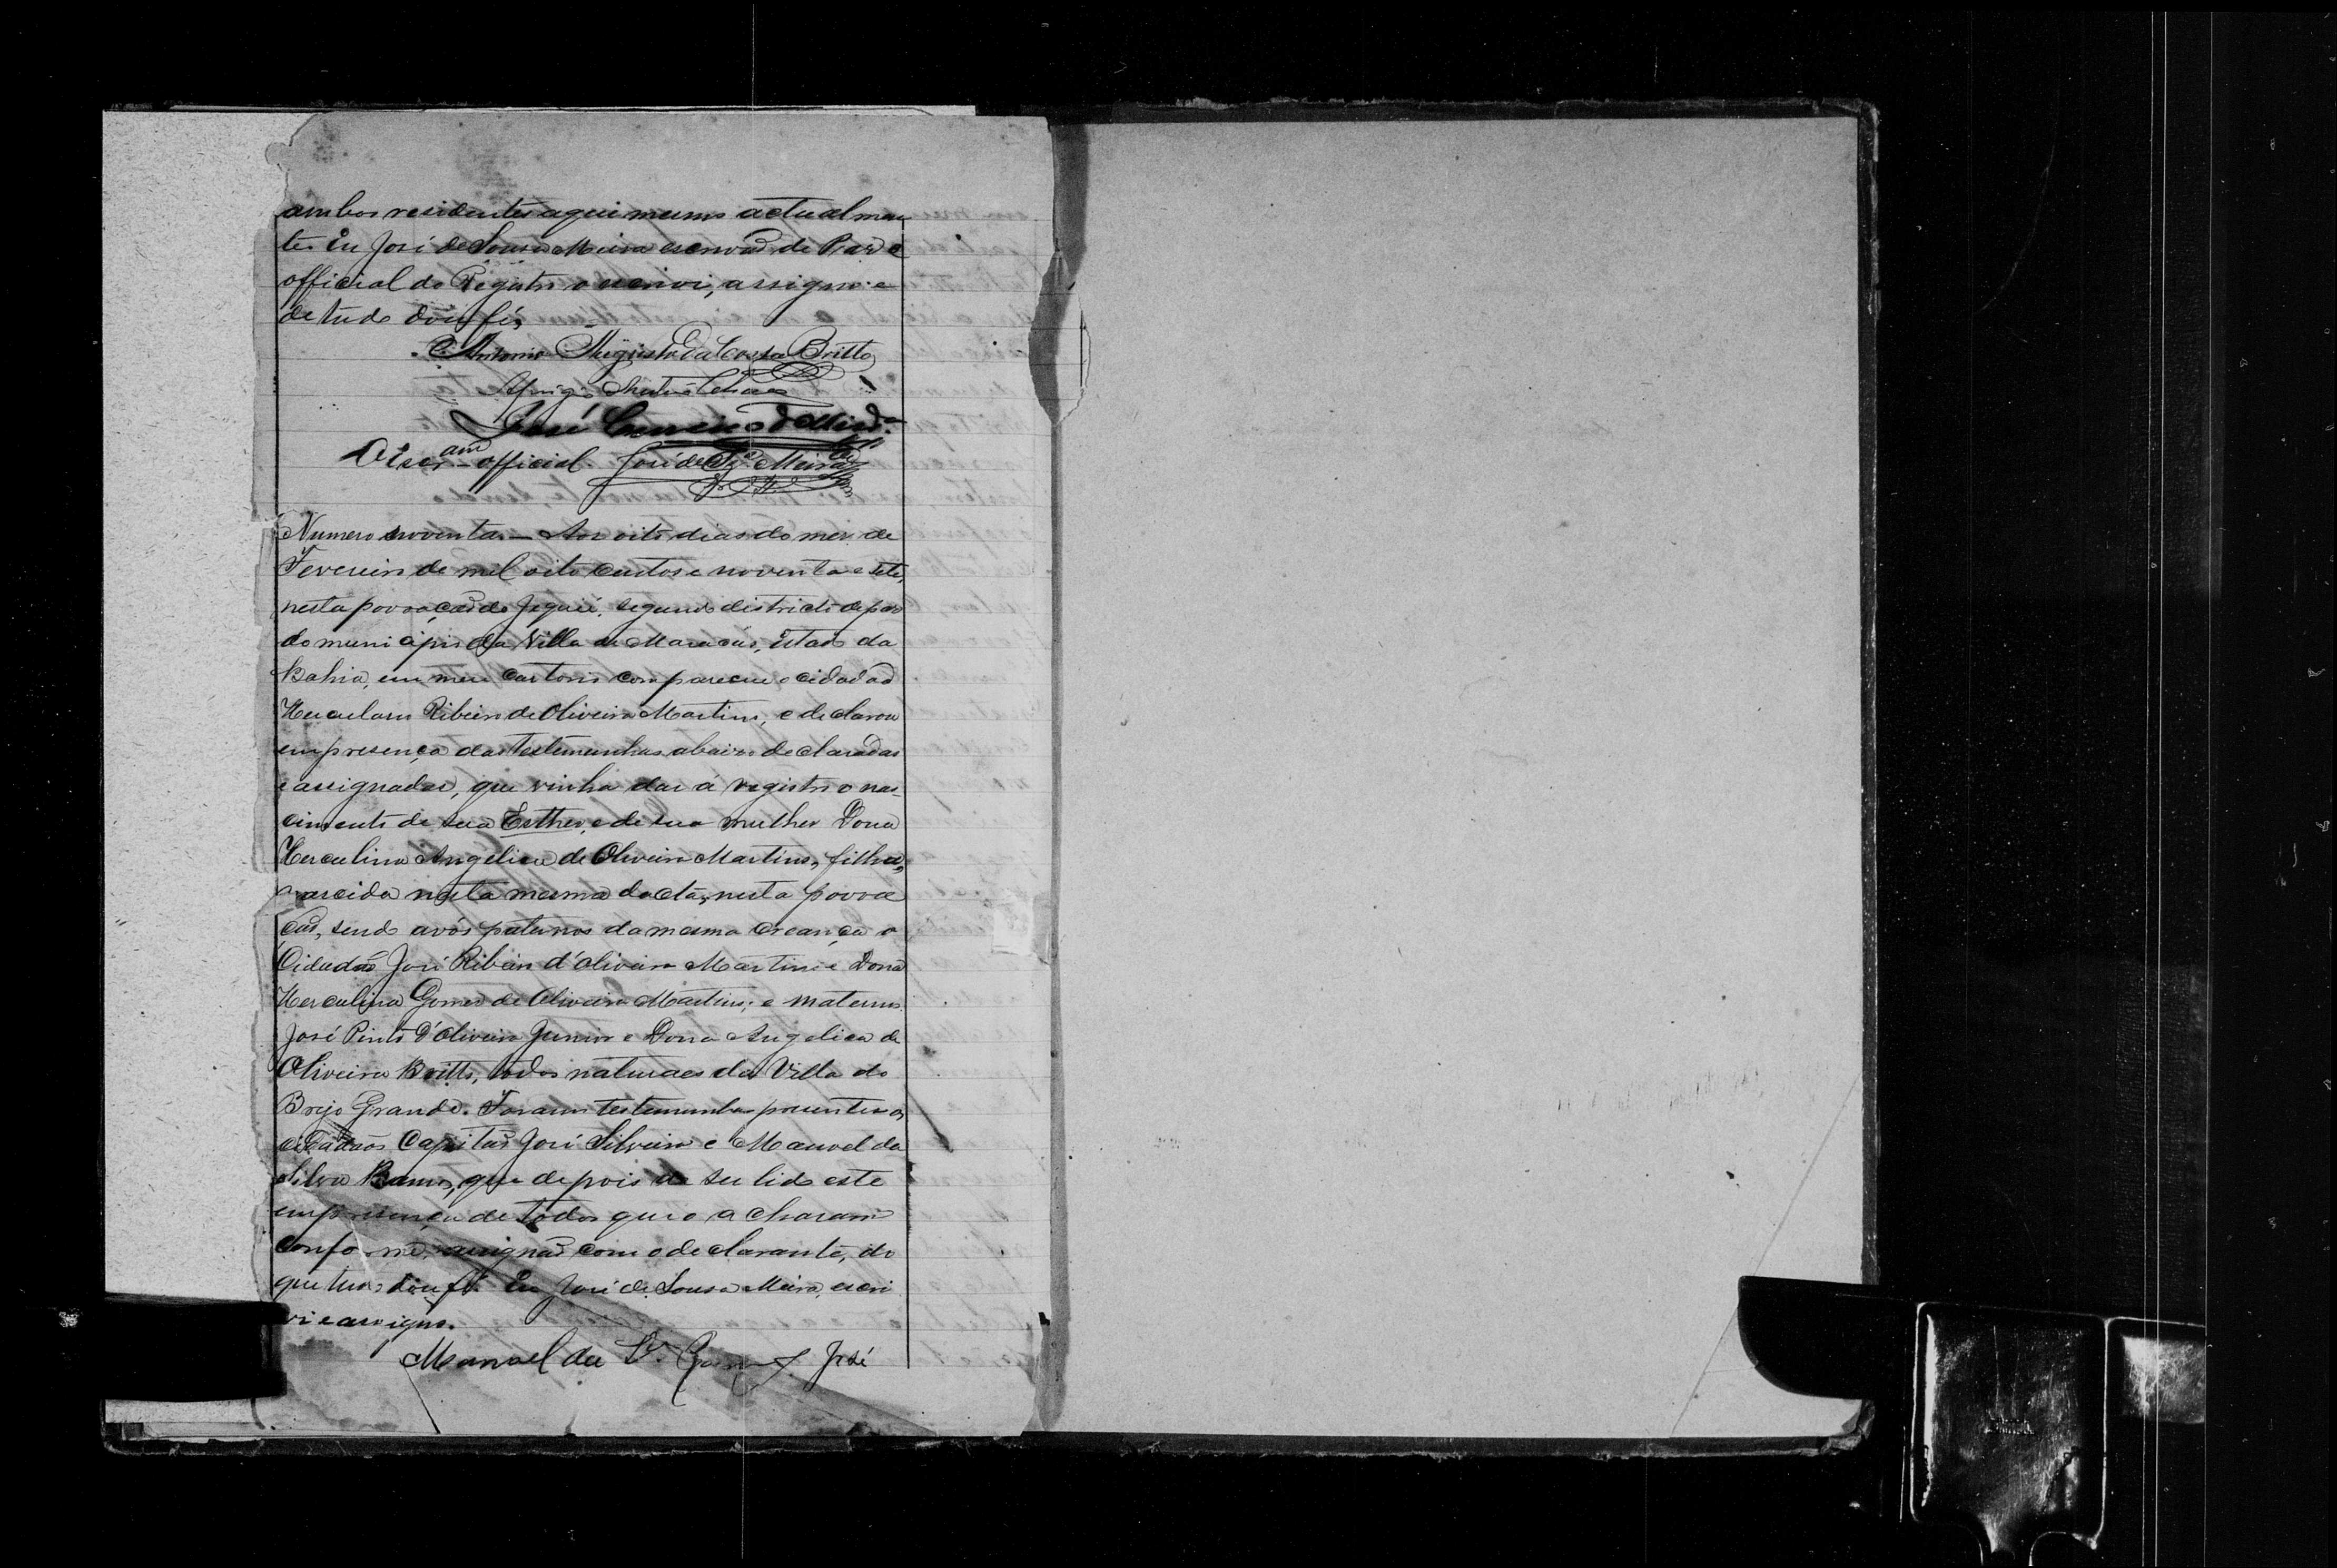 ambos residentes aqui mesmo actualmen
te. Eu José de Sousa Meira escrivaõ de Paz e
official do Registro o escrivi, assigno e
de tudo dou fé,
Antonio Augusto da Costa Britto
Aprigio Chaves
José
O Escr.am official José de Sz.a Meira
Numero noventa. — Aos oito dias do mez de
Fevereiro de mil oito centos e noventa e sete,
nesta povoação do Jequié, segundo districto de paz
do municipio da Villa de Maracás, Estado da
Bahia, em meu cartorio compareceu o cidadaõ
Herculano Ribeiro de Oliveira Martins, e declarou
em presença das testemunhas abaixo declaradas
e assignadas, que vinha dar á registro o nas-
cimento de sua Esther, e de sua mulher Dona
Herculina Angelica de Oliveira Martins, filha,
nascida nesta mesma dacta, nesta povoa
caõ, sendo avós paternos da mesma creança o
Cidadaõ José Ribeiro d'Oliveira Martins e Dona
Herculina Gomes de Oliveira Martins; e maternos
José Pinto d'Oliveira Junior e Dona Angelica de
Oliveira Britto, todos naturaes da Villa do
Brejo Grande. Foram testemunhas presentes os
cidadaõs Capitaõ José Silveira e Manoel da
Silva Ramos, que depois de ser lido este
em presença de todos que o acharam
conforme, assignaõ com o declarante, do
que tudo dou fé. Eu José de Sousa Meira, escri
vi e assigno.
Manoel da S.a José